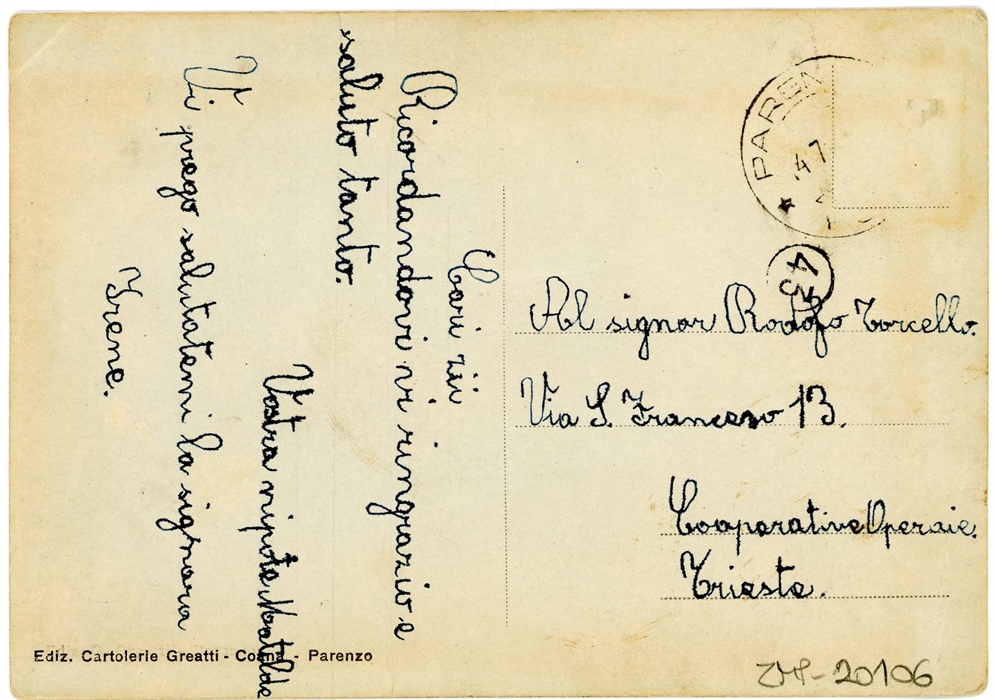 Cari zii
Ricordandovi vi ringrazio e
saluto tanto.
Vostra nipote Matilde
Vi prego salutatemi la signora
Irene.
PAREN
47
43
Al signor Rodolfo Torcello.
Via S. Franceso 13.
Cooperative Operaie.
Trieste.
Ediz. Cartolerie Greatti - - Parenzo
ZMP-20106